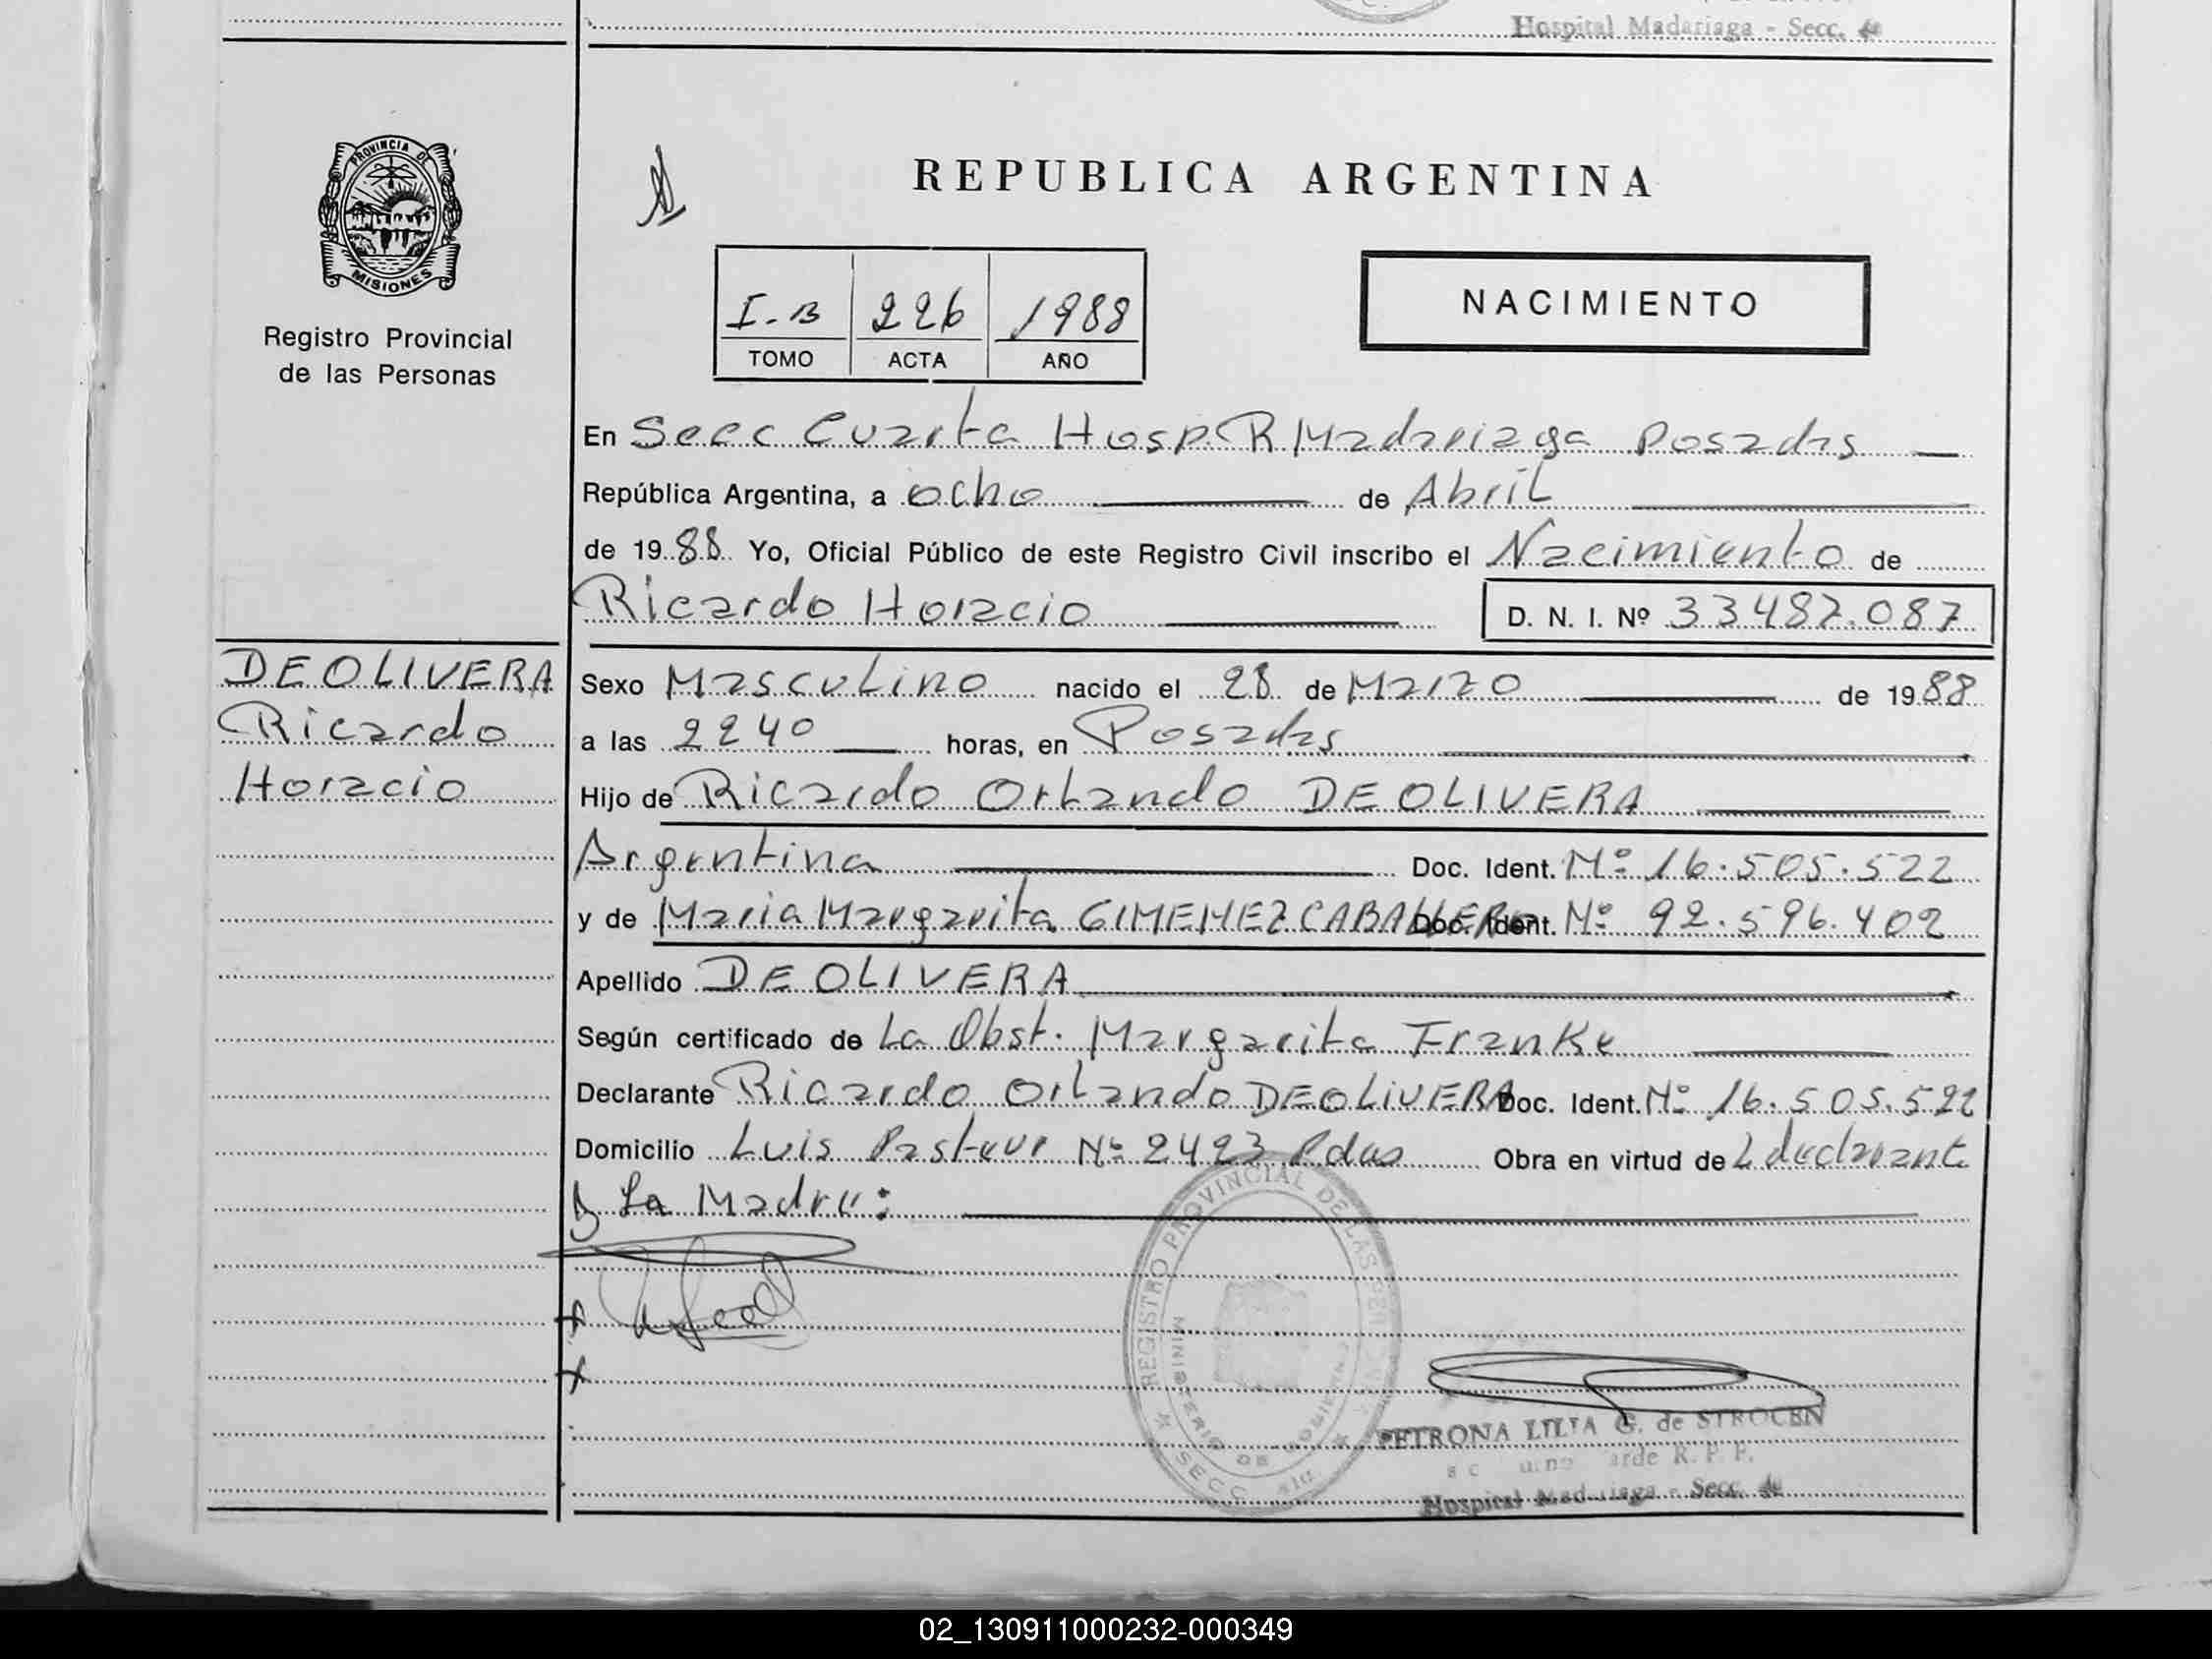 Hospital Madariaga - Secc. 4a
PROVINCIA DE
MISIONES
Registro Provincial
de las Personas
REPUBLICA ARGENTINA
NACIMIENTO
I-B 226 1988
TOMO ACTA AÑO
En Secc Cuarta Hosp. R Madariaga Posadas
República Argentina, a ocho de Abril
de 1988 Yo, Oficial Público de este Registro Civil inscribo el Nacimiento de
Ricardo Horacio D. N. I. Nº 33487.087
DEOLIVERA
Ricardo
Horacio
Sexo Masculino nacido el 28 de Marzo de 1988
a las 2240 horas, en Posadas
Hijo de Ricardo Orlando DEOLIVERA
Argentina Doc. Ident. Nº 16.505.522
y de Maria Margarita GIMENEZ CABALLERO Doc. Ident. Nº 92.596.402
Apellido DEOLIVERA
Según certificado de La Obst. Margarita Franke
Declarante Ricardo Orlando DEOLIVERA Doc. Ident. Nº 16.505.522
Domicilio Luis Pasteur Nº 2423 Pdas Obra en virtud de L declarante
y La Madre:
REGISTRO PROVINCIAL DE LAS PER
MINISTERIO DE
SECC
PETRONA LILIA G. de STROCEN
R. P. P.
Hospital Madariaga - Secc. 4a
02_130911000232-000349